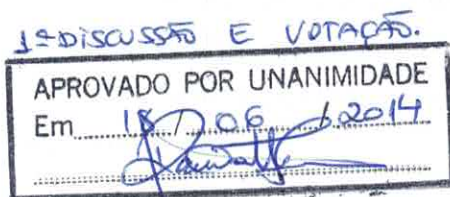 1ª DISCUSSÃO E VOTAÇÃO.
APROVADO POR UNANIMIDADE
Em 18 / 06 / 2014